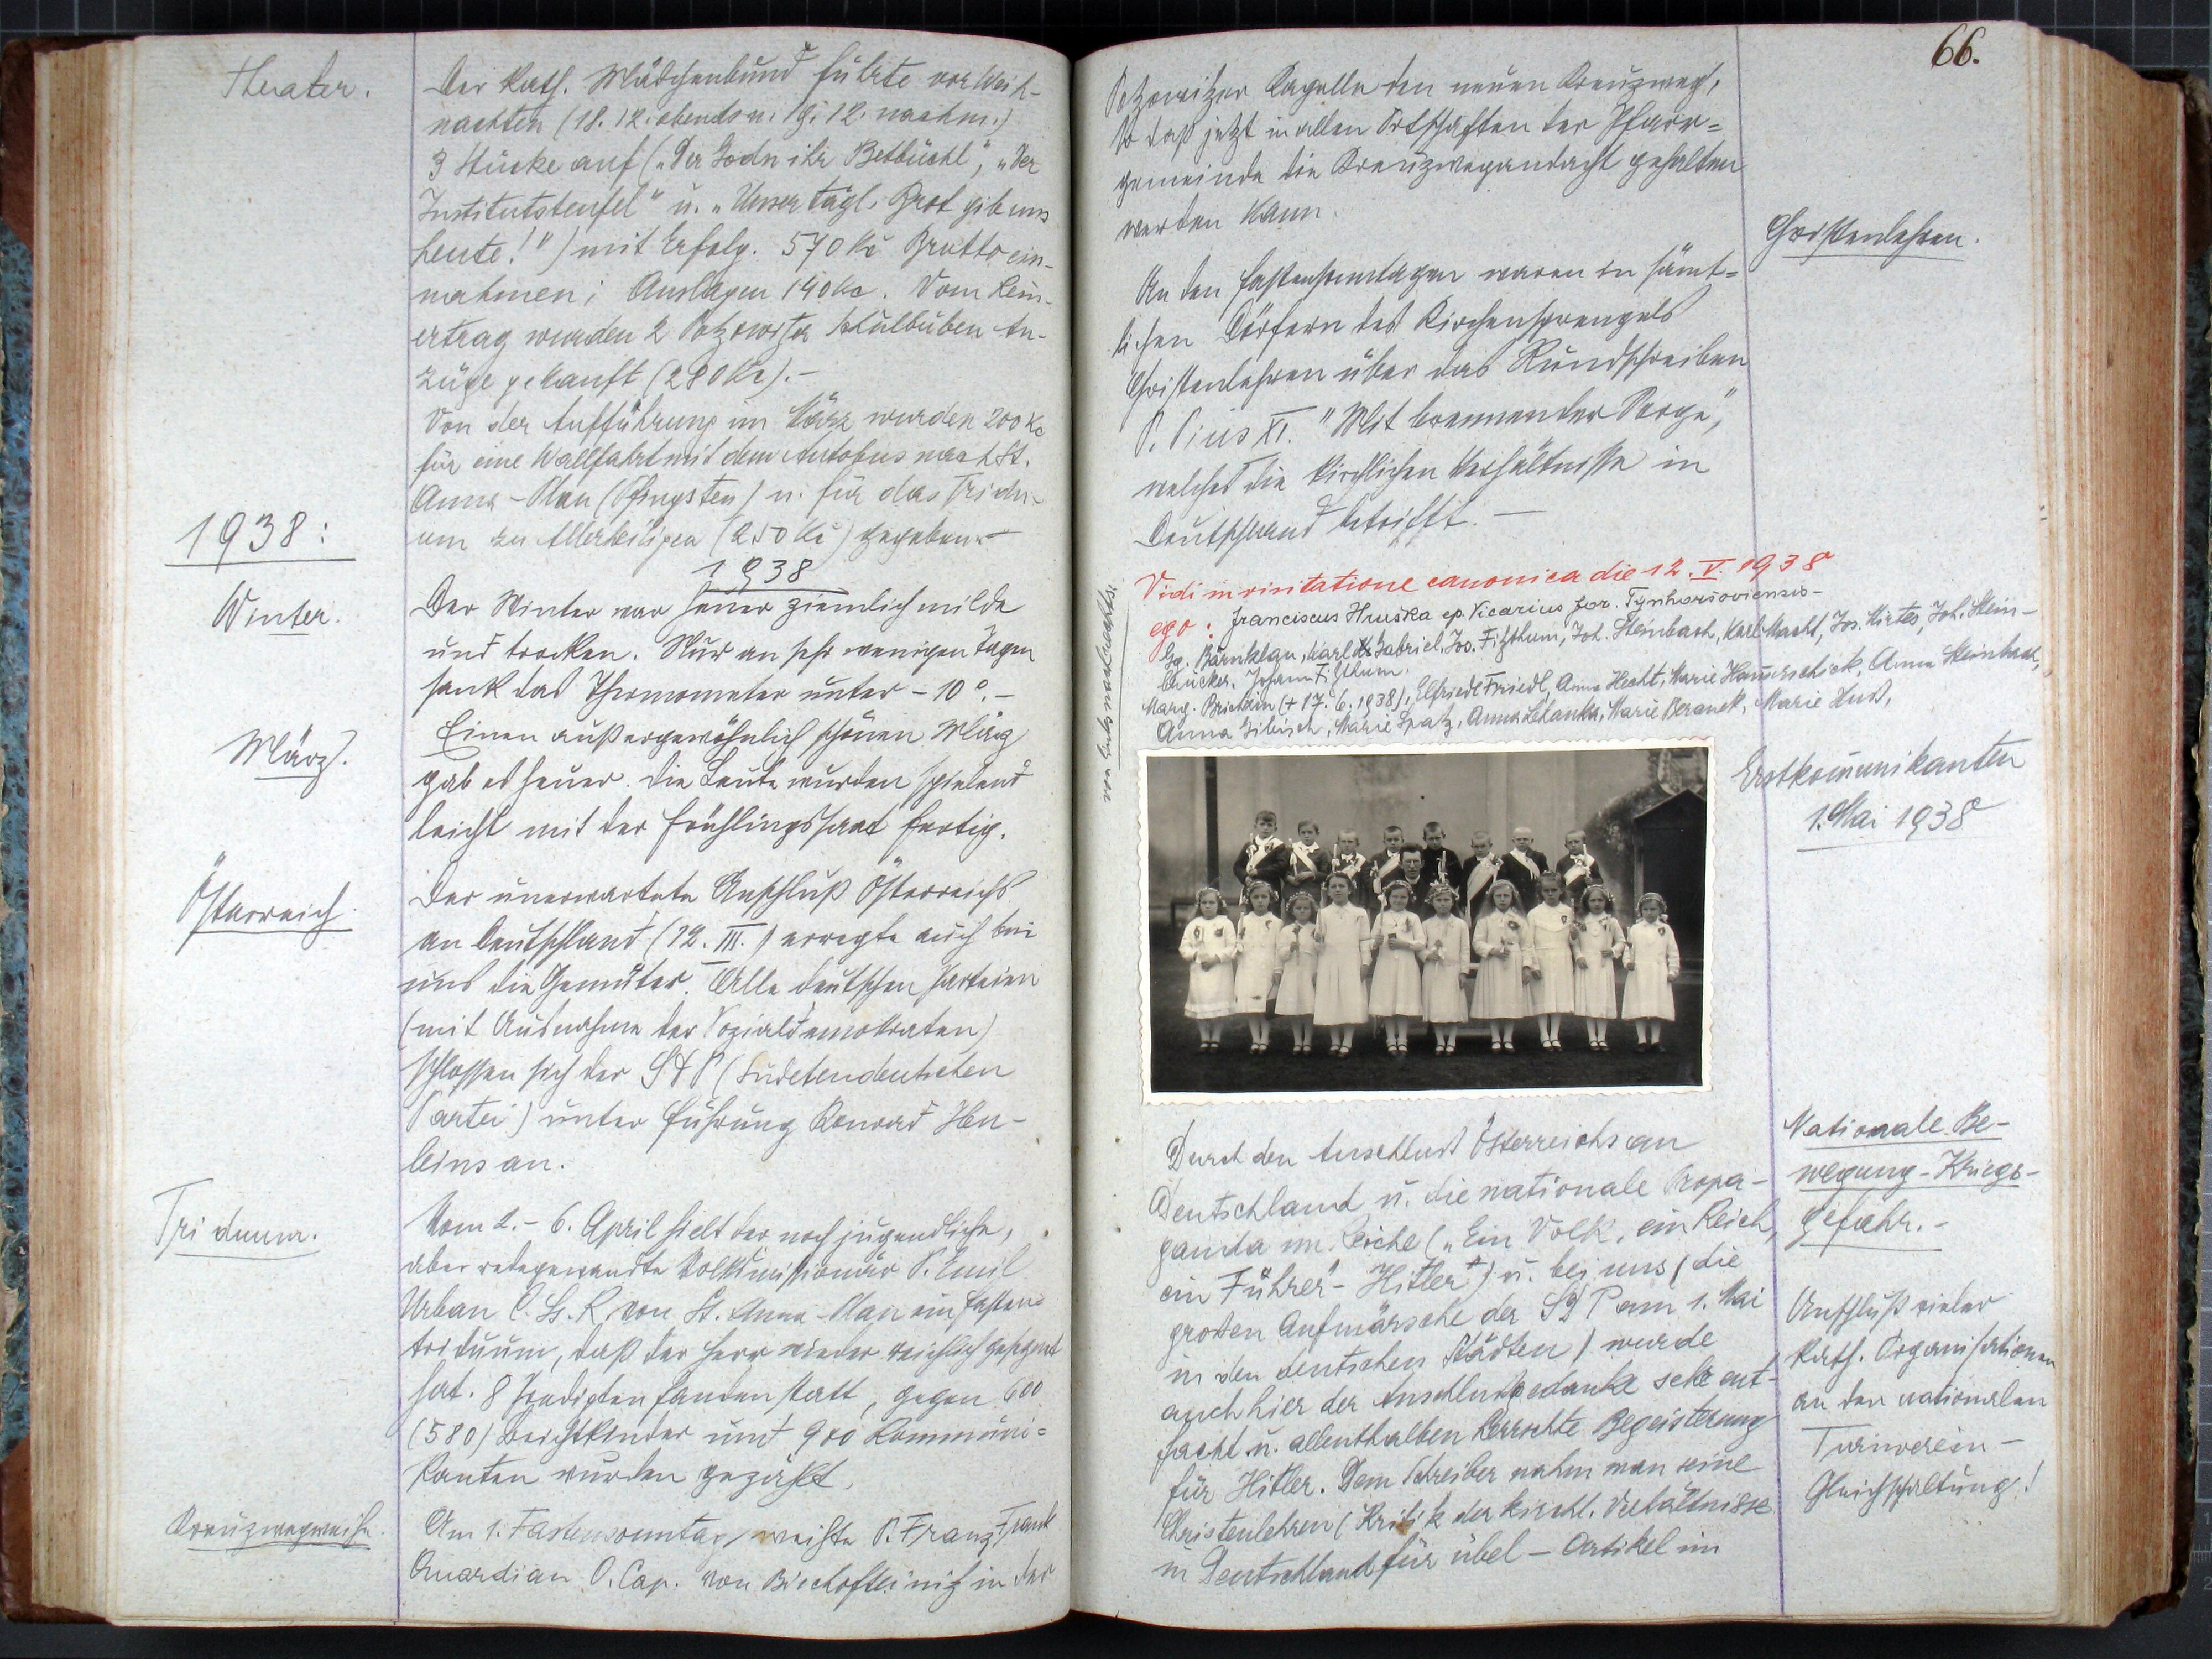 Theater.
Der kath. Mädchenbund führte vor Weih-
nachten (18. 12. abends u. 19. 12. nachm.)
3 Stücke auf („Der Godn ihr Betbüchl", „Der
Institutsteufel" u. „Unser tägl. Brot gib uns
heute!") mit Erfolg. 570 Kč Brutto ein-
nahmen; Auslagen 190 Kč. Vom Rein-
ertrag wurden 2 Potzowitzer Schulbuben An-
züge gekauft (280 Kč).-
Von der Aufführung im März wurden 200 Kč
für eine Wallfahrt mit dem Autobus nach St.
Anna-Plan (Pfingsten) u. für das Tridu-
um zu Allerheiligen (250 Kč) gegeben.-
1938:
1938
Winter.
Der Winter war heuer ziemlich milde
und trocken. Nur an sehr wenigen Tagen
sank das Thermometer unter -10°.-
März.
Einen außergewöhnlich schönen März
gab es heuer. Die Leute wurden spielend
leicht mit der Frühlingssaat fertig.
Österreich.
Der unerwartete Anschluß Österreichs
an Deutschland (12. III.) erregte auch bei
uns die Gemüter. Alle deutschen Parteien
(mit Ausnahme der Sozialdemokraten)
schlossen sich der SdP (Sudetendeutschen
Partei) unter Führung Konrad Hen-
leins an.
Triduum.
Vom 2.- 6. April hielt der noch jugendliche,
aber redegewandte Volksmissionär P. Emil
Urban C. Ss. R. von St. Anna-Plan ein Fasten-
triduum, daß der Herr wieder reichlich gesegnet
hat. 8 Predigten fanden statt, gegen 600
(580) Beichtkinder und 900 Kommuni=
kanten wurden gezählt.
Kreuzwegweihe.
Am 1. Fastensonntag weihte P. Franz Frank
Quardian O. Cap. von Bischofteinitz in der
66.
Potzowitzer Kapelle den neuen Kreuzweg,
so daß jetzt in allen Ortschaften der Pfarr=
gemeinde die Kreuzwegandacht gehalten
werden kann.
Christenlehren.
An den Fastensonntagen waren in sämt=
lichen Dörfern des Kirchensprengels
Christenlehren über das Rundschreiben
P. Pius XI. "Mit brennender Sorge",
welches die kirchlichen Verhältnisse in
Deutschland betrifft.-
Vidi in visitatione canonica die 12. V. 1938
ego: Franciscus Hruška ep. Vicarius for. Tynhoršoviensis-
von links nach rechts:
Gg. Bärnklau, Karl Gabriel, Jos. Fizthum, Joh. Steinbach, Karl Macht, Jos. Wirtes, Joh. Stein-
brucker, Johann Fizthum.
Marg. Brichtin (+ 17. 6. 1938), Elfriede Friedl, Anna Hecht, Marie Hauerschick, Anna Steinbach,
Anna Zibisch, Marie Spatz, Anna Lehanka, Marie Beranek, Marie Huss,
Erstkommunikanten
1. Mai 1938
Nationale Be-
wegung-Kriegs-
gefahr.-
Durch den Anschluss Österreichs an
Deutschland u. die nationale Propa-
ganda im Reiche („Ein Volk, ein Reich,
ein Führer"- Hitler") u. bei uns (die
großen Aufmärsche der SdP am 1. Mai
in den deutschen Städten) wurde
auch hier der Anschlußgedanke sehr ent-
facht u. allenthalben herrschte Begeisterung
für Hitler. Dem Schreiber nahm man seine
Christenlehren (Kritik der kirchl. Verhältnisse
in Deutschland für übel - Artikel im
Anschluß vieler
kath. Organisationen
an den nationalen
Turnverein -
Gleichschaltung!